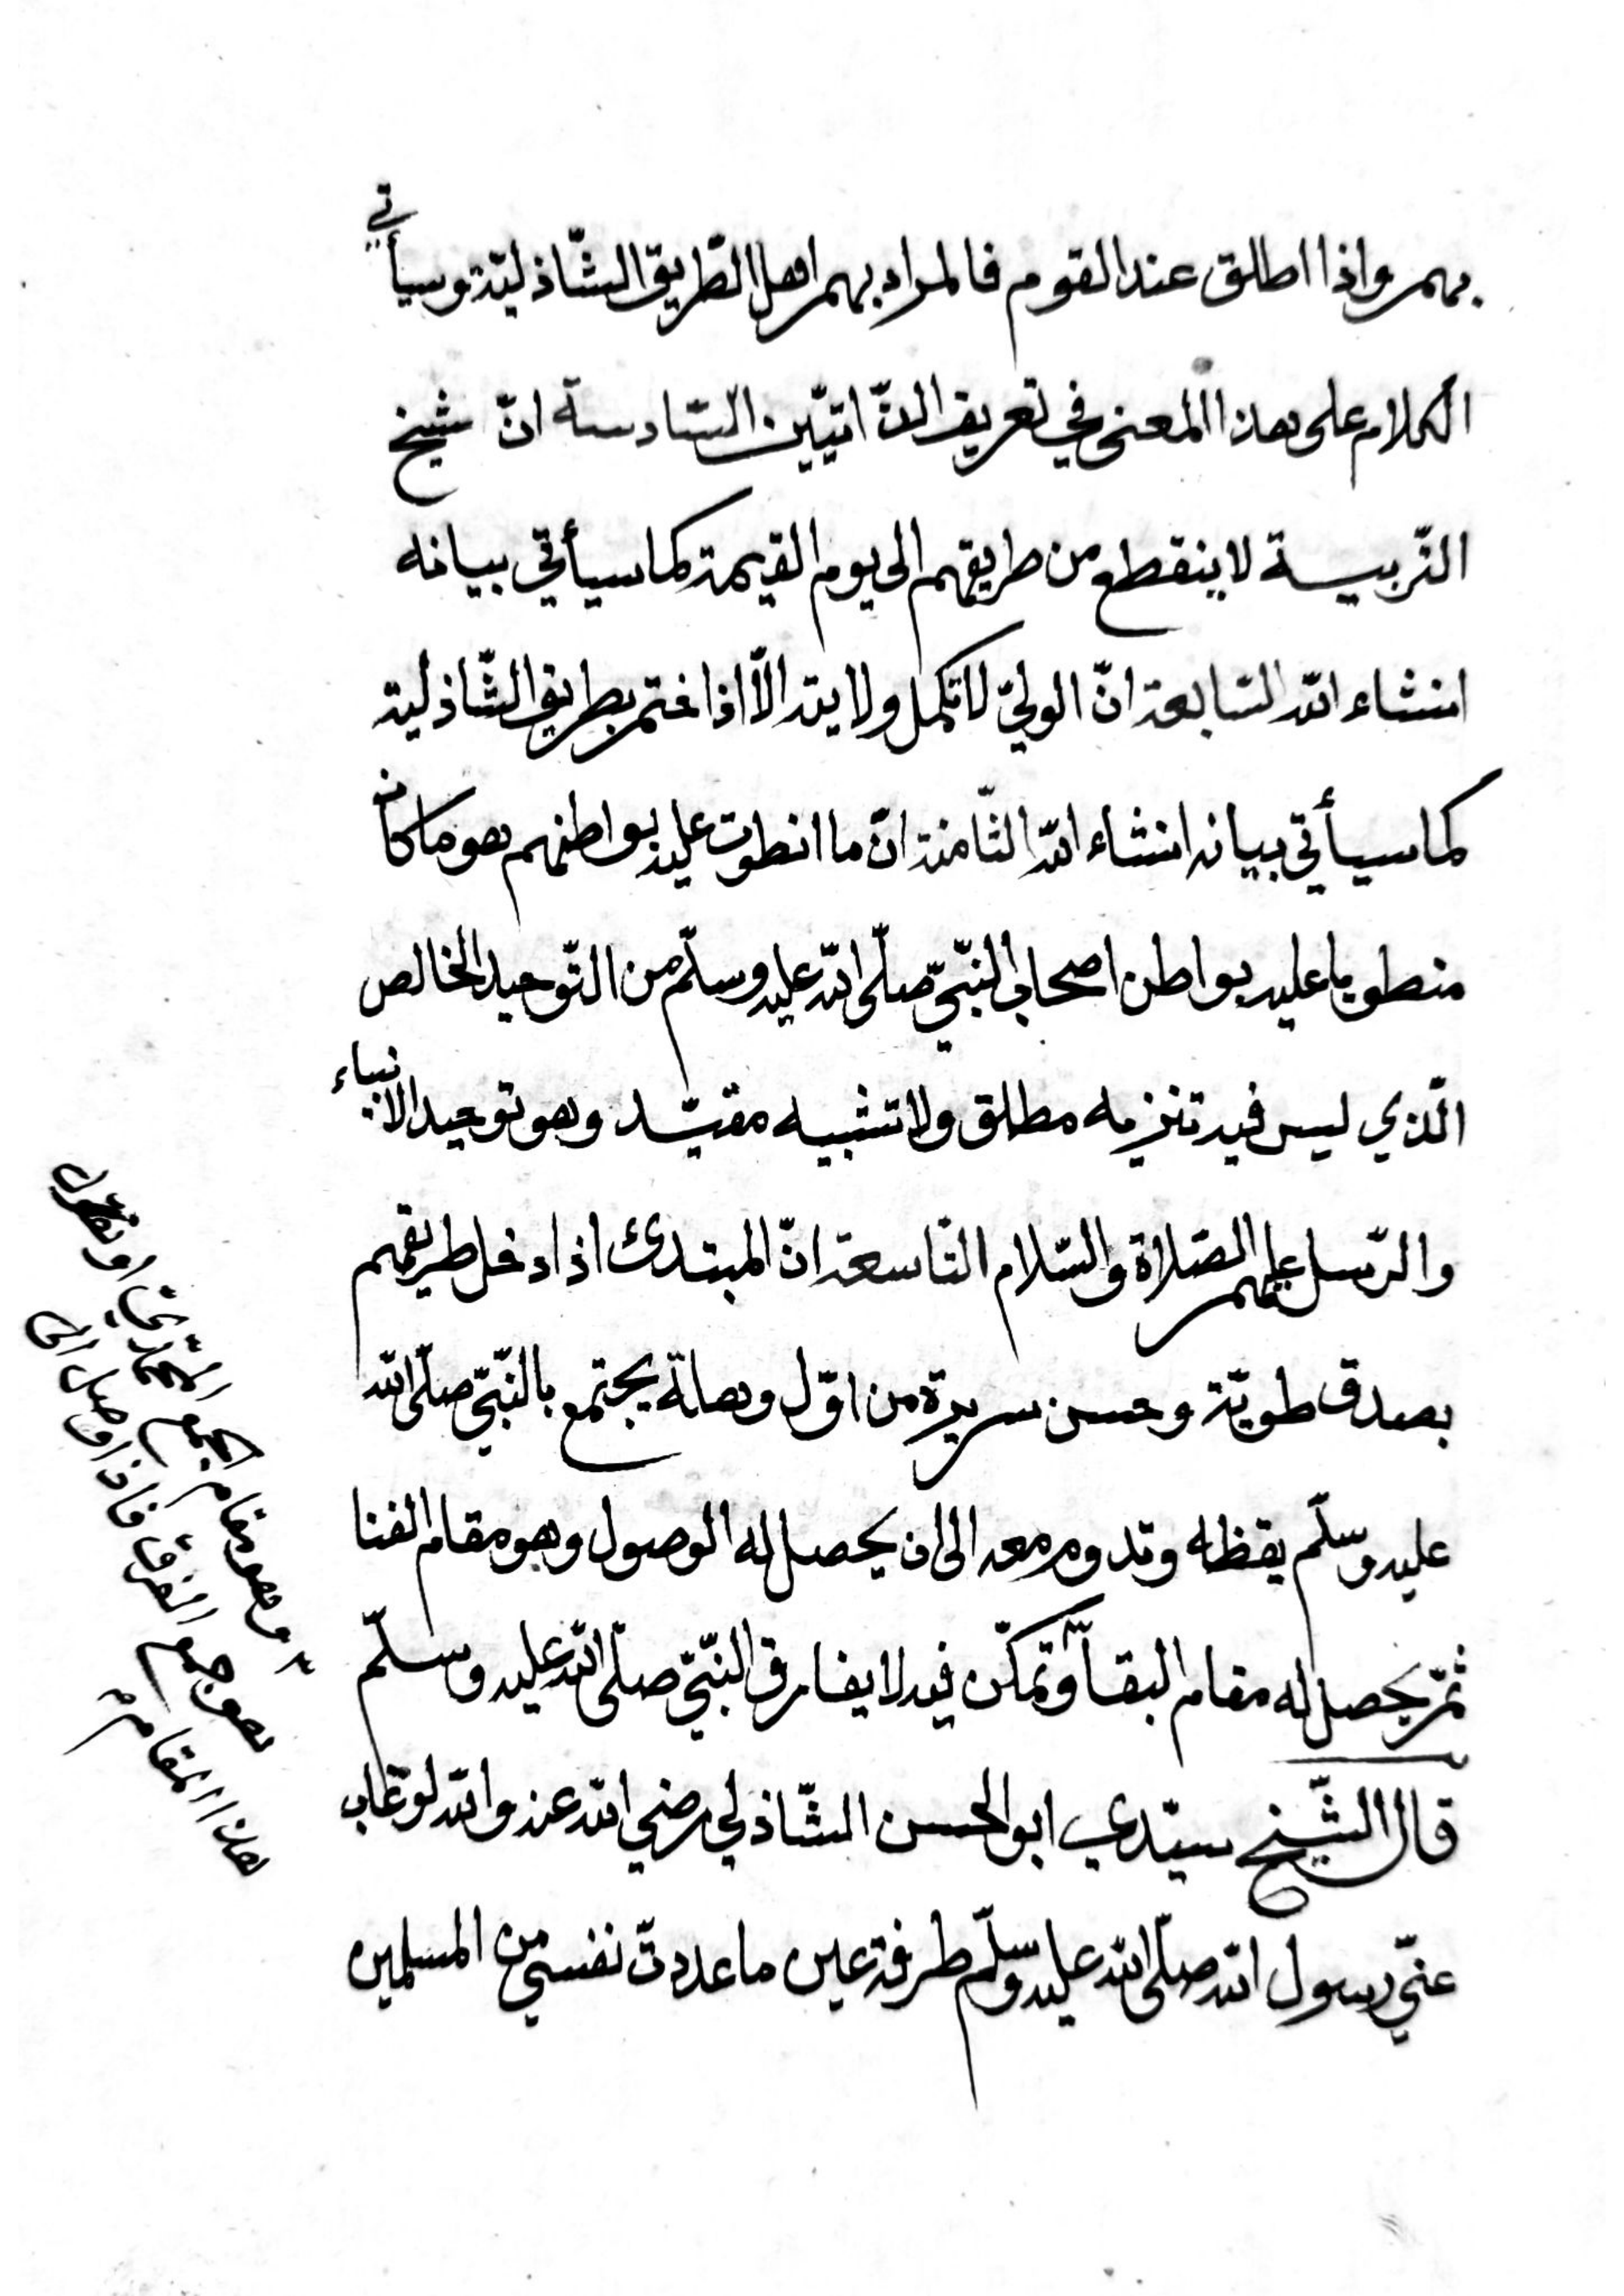 بهم واذا اطلق عند القوم فالمراد بهم اهل الطّريق الشّاذليّة وسيأتي
الكلام على هذا المعنى في تعريف الذّاتيّين السّادسة انّ شيخ
التّربية لا ينقطع من طريقهم الى يوم القيمة كما سيأتي بيانه
انشاء اللّه السّابعة انّ الوليّ لا تكمل ولايته الّا اذا ختم بطريق الشّاذلية
كما سيأتي بيانه انشاء اللّه الثّامنة انّ ما انطوت عليه بواطنهم هو ما كان
منطويا عليه بواطن اصحاب النّبيّ صلّى اللّه عليه وسلّم من التّوحيد الخالص
الّذي ليس فيه تنزيه مطلق ولا تشبيه مقيّد وهو توحيد الانبياء
والرّسل عليهم الصّلاة والسّلام التّاسعة انّ المبتدئ اذا دخل طريقهم
بصدق طويّة وحسن سريرة من اوّل وهلة يجتمع بالنّبيّ صلّى اللّه
عليه وسلّم يقظة وتدوم معه الى ان يحصل له الوصول وهو مقام الفنا
ثمّ يحصل له مقام البقاء وتمكّن فيه لا يفارق النّبيّ صلّى اللّه عليه وسلّم
قال الشّيخ سيّدي ابو الحسن الشّاذلي رضي اللّه عنه واللّه لو غاب
عنّي رسول اللّه صلّى اللّه عليه وسلّم طرفة عين ما عددتّ نفسي من المسلمين
وهو مقام الجمع المحمّدي او نقول
هو جمع الفرق فاذا وصل الى
هذا المقام